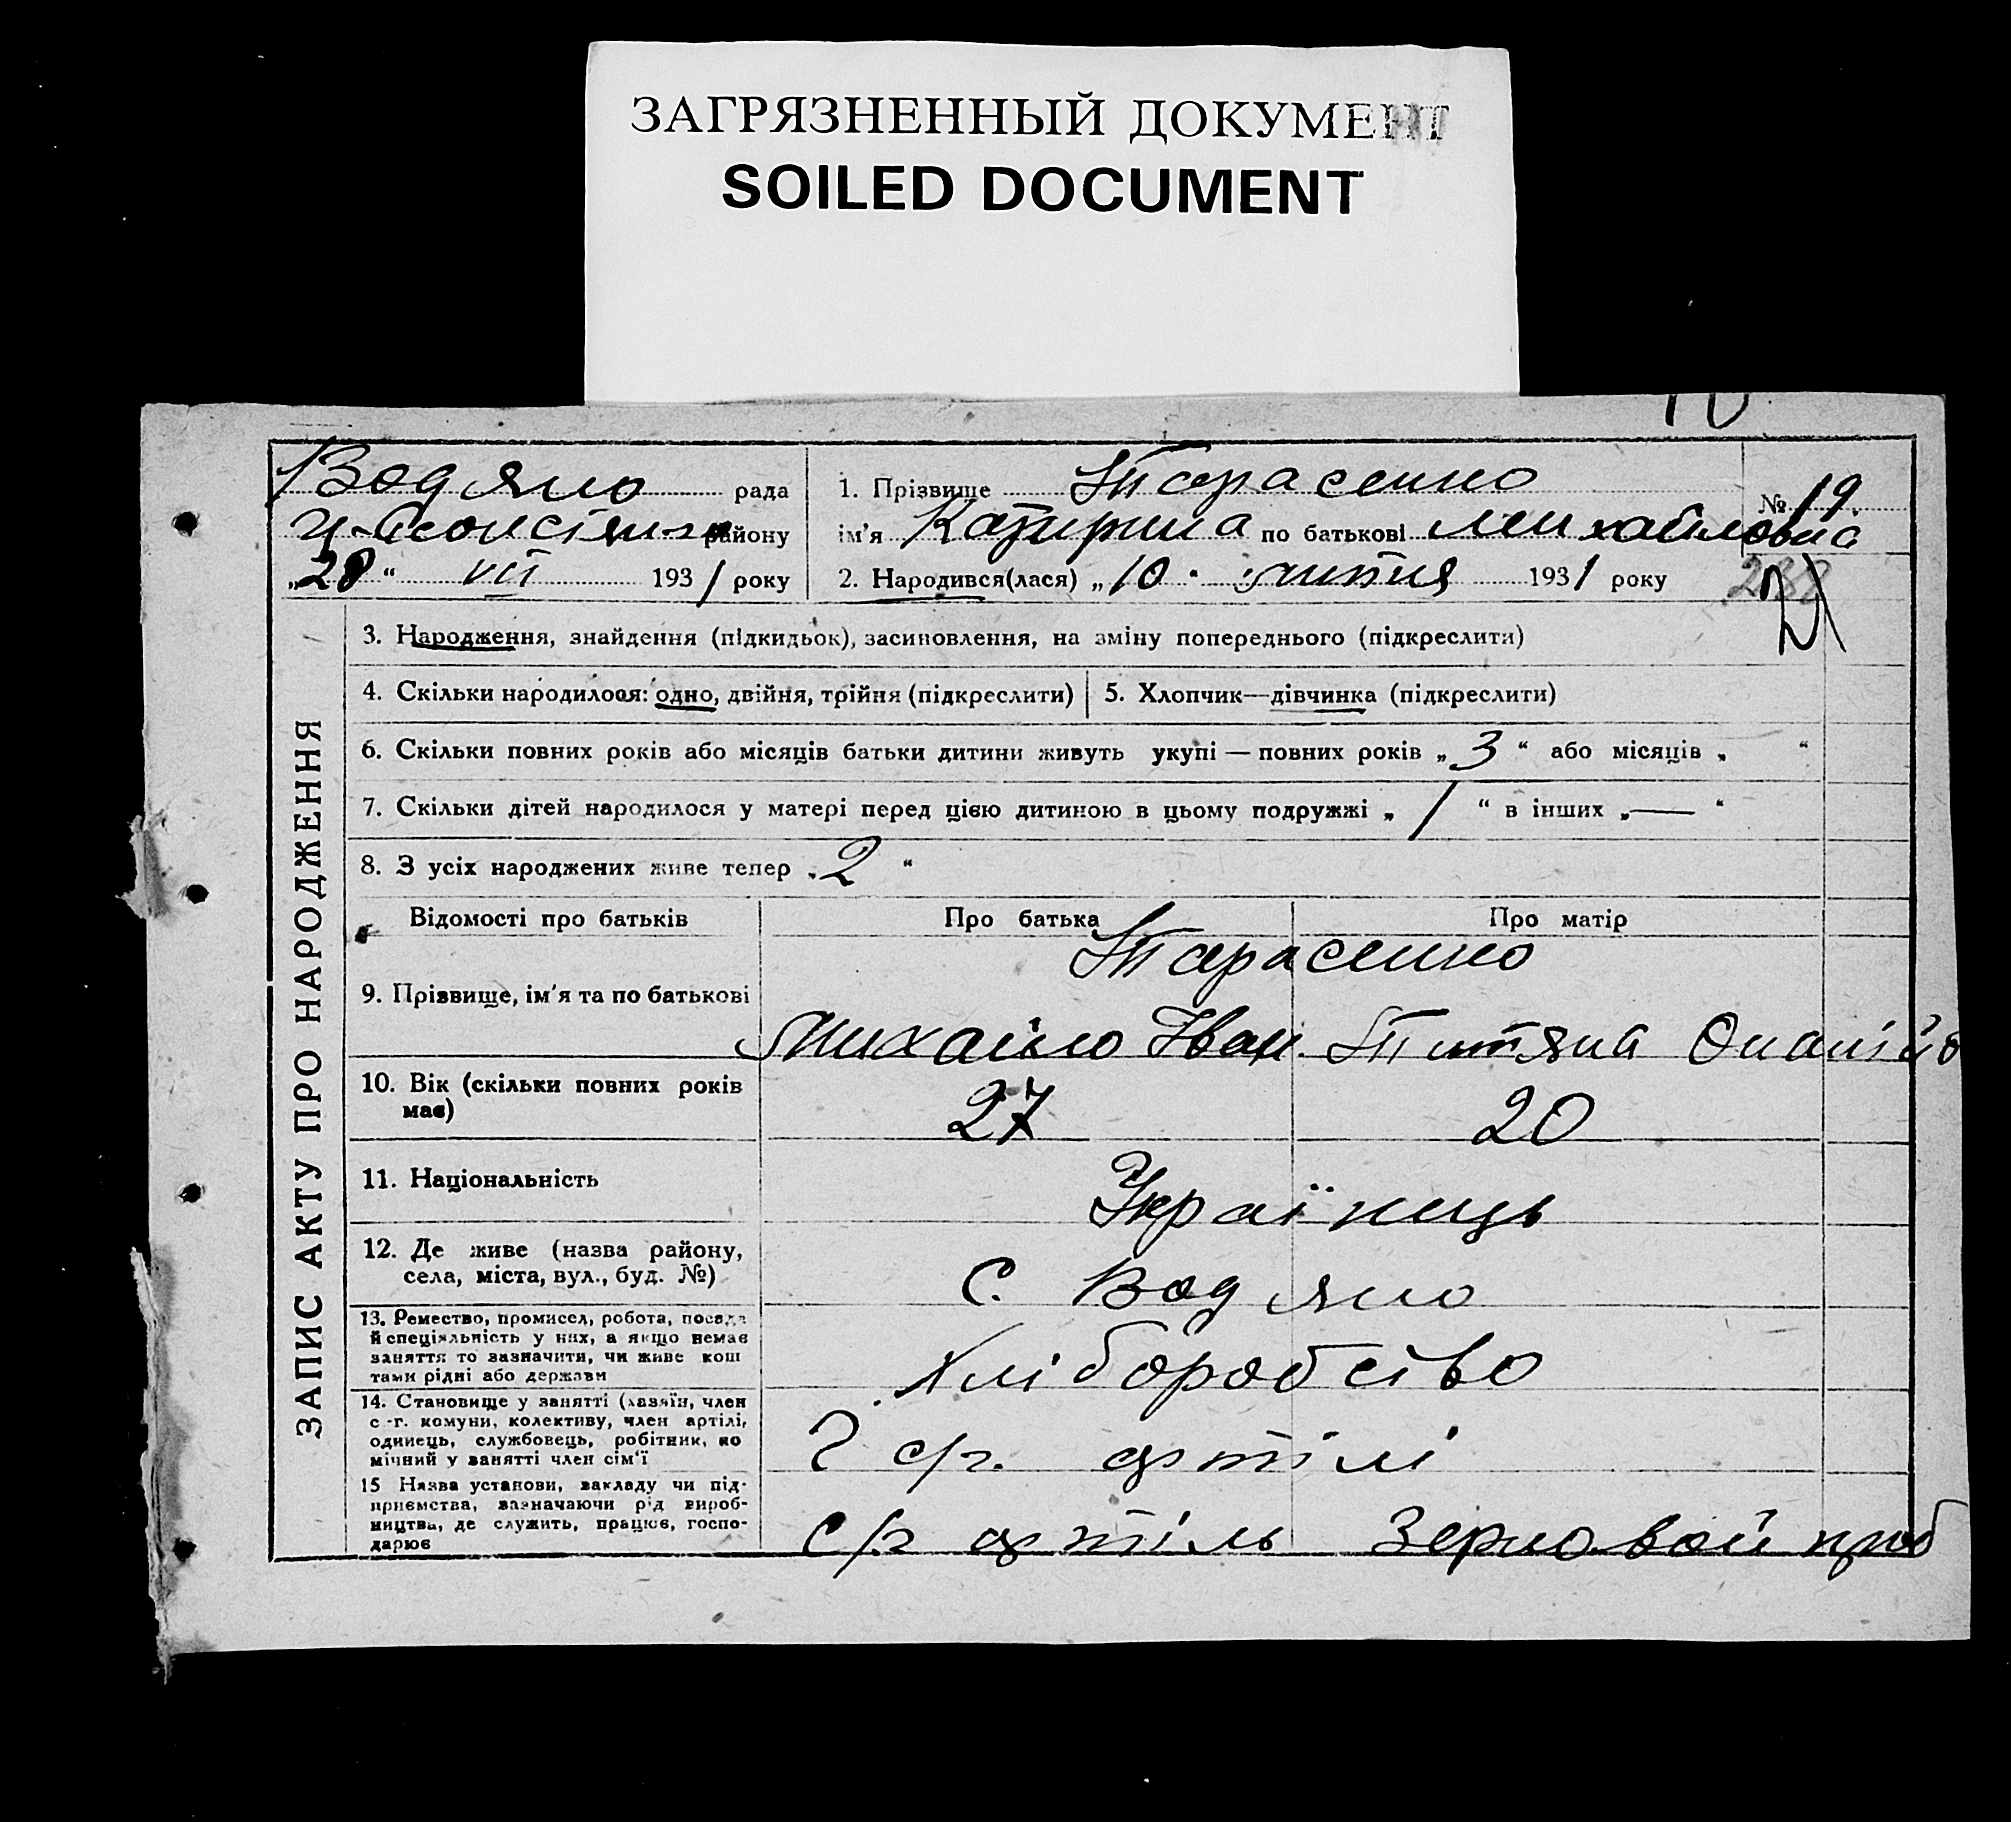 ЗАГРЯЗНЕННЫЙ ДОКУМЕНТ
SOILED DOCUMENT
Водяно рада
району
„28“ VII 1931 року
1. Прізвище Тарасенко
№ 19.
ім'я Катирина по батькові Михайловна
2. Народився(лася) „10. липня 1931 року
ЗАПИС АКТУ ПРО НАРОДЖЕННЯ
3. Народження, знайдення (підкидьок), засиновлення, на зміну попереднього (підкреслити)
4. Скільки народилося: одно, двійня, трійня (підкреслити)
5. Хлопчик—дівчинка (підкреслити)
6. Скільки повних років або місяців батьки дитини живуть укупі — повних років „3“ або місяців „ “
7. Скільки дітей народилося у матері перед цією дитиною в цьому подружжі „1“ в інших „—“
8. З усіх народжених живе тепер „2“
Відомості про батьків Про батька Про матір
9. Прізвище, ім'я та по батькові
Тарасенко
Михайло Іван. Титяна
10. Вік (скільки повних років
має)
27 20
11. Національність
Українць
12. Де живе (назва району,
села, міста, вул., буд. №)
С. Водяно
13. Ремество, промисел, робота, посада
й спеціяльність у них, а якщо немає
заняття то зазначити, чи живе кош
тами рідні або держави
Хліборобство
14. Становище у занятті (хазяїн, член
с.-г. комуни, колективу, член артілі,
одинець, службовець, робітник, по
мічний у занятті член сім'ї
с/г. артілі
15 Назва установи, закладу чи під-
приємства, зазначаючи рід вироб-
ництва, де служить, працює, госпо-
дарює
с/г артіль Зерновой